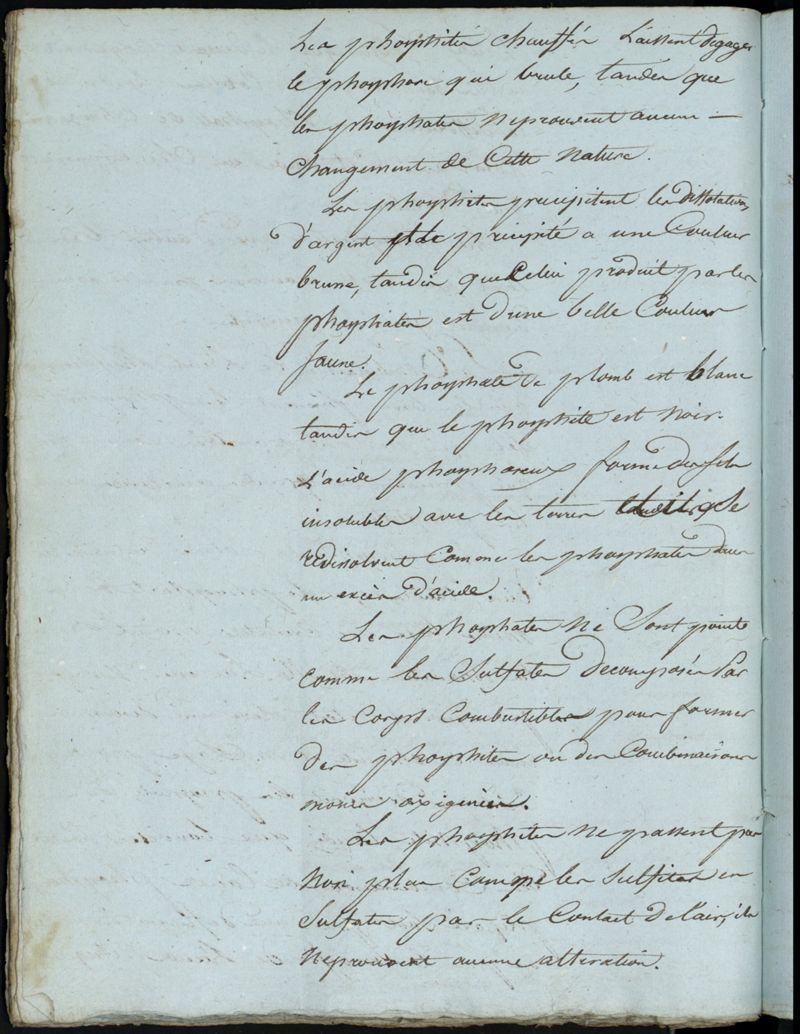 Les phosphites chauffés Laissent degager
le phosphore qui brule, tandis que
les phosphates Neprouvent aucun —
changement de Cette Nature.
Les phosphites precipitent les dissolutions
d'argent et le precipité a une Couleur
brune, tandis que Celui produit par les
phosphates est d'une belle Couleur
jaune.
Le phosphate de plomb est blanc
tandis que le phosphite est Noir.
L'acide phosphoreux forme des Sels
insolubles avec les terres et qui Se
redissolvent Comme les phosphates dans
un excès d'acide.
Les phosphates Ne Sont point
comme les Sulfates decomposés Par
les Corps Combustibles pour former
des phosphites ou des Combinaisons
moins oxigenées.
Les phosphites ne passent pas
Non plus Comme les Sulfites en
Sulfates par le Contact de l'air, ils
Neprouvent aucune alteration.